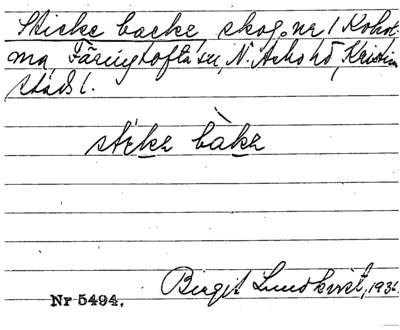 Sticke backe, skog. nr 1 Kohol-
ma, Färingtofta sn, N. Åsbo hd, Kristian
stads l.
steke bake
Birgit Lundkvist, 1936.
Nr 5494.